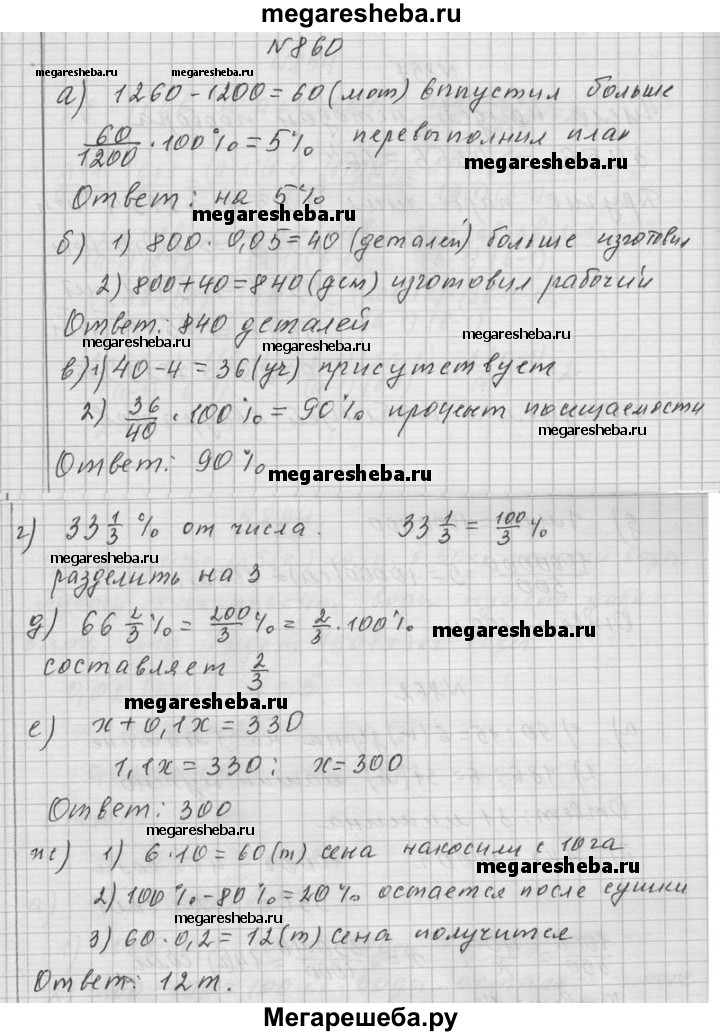 megaresheba.ru
N 860
megaresheba.ru megaresheba.ru
а) 1260 - 1200 = 60 (мот) выпустил больше
60/1200 · 100% = 5% перевыполнил план
megaresheba.ru
Ответ: на 5%
megaresheba.ru
б) 1) 800 · 0,05 = 40 (деталей) больше изготовил
2) 800 + 40 = 840 (дет) изготовил рабочий
Ответ: 840 деталей
megaresheba.ru megaresheba.ru
в) 1) 40 - 4 = 36 (уч) присутствует
2) 36/40 · 100% = 90% процент посещаемости
megaresheba.ru
Ответ: 90%
megaresheba.ru
г) 33 1/3 % от числа. 33 1/3 = 100/3 %
megaresheba.ru
разделить на 3
д) 66 2/3 % = 200/3 % = 2/3 · 100%
megaresheba.ru
составляет 2/3
megaresheba.ru
е) x + 0,1x = 330
1,1x = 330; x = 300
Ответ: 300
megaresheba.ru
ж) 1) 6 · 10 = 60 (т) сена накосили с 10 га
megaresheba.ru
2) 100% - 80% = 20% остается после сушки
megaresheba.ru
3) 60 · 0,2 = 12 (т) сена получится
megaresheba.ru
Ответ: 12 т.
Мегарешеба.ру